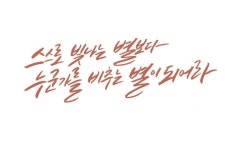 스스로 빛나는 별보다
누군가를 비추는 별이 되어라